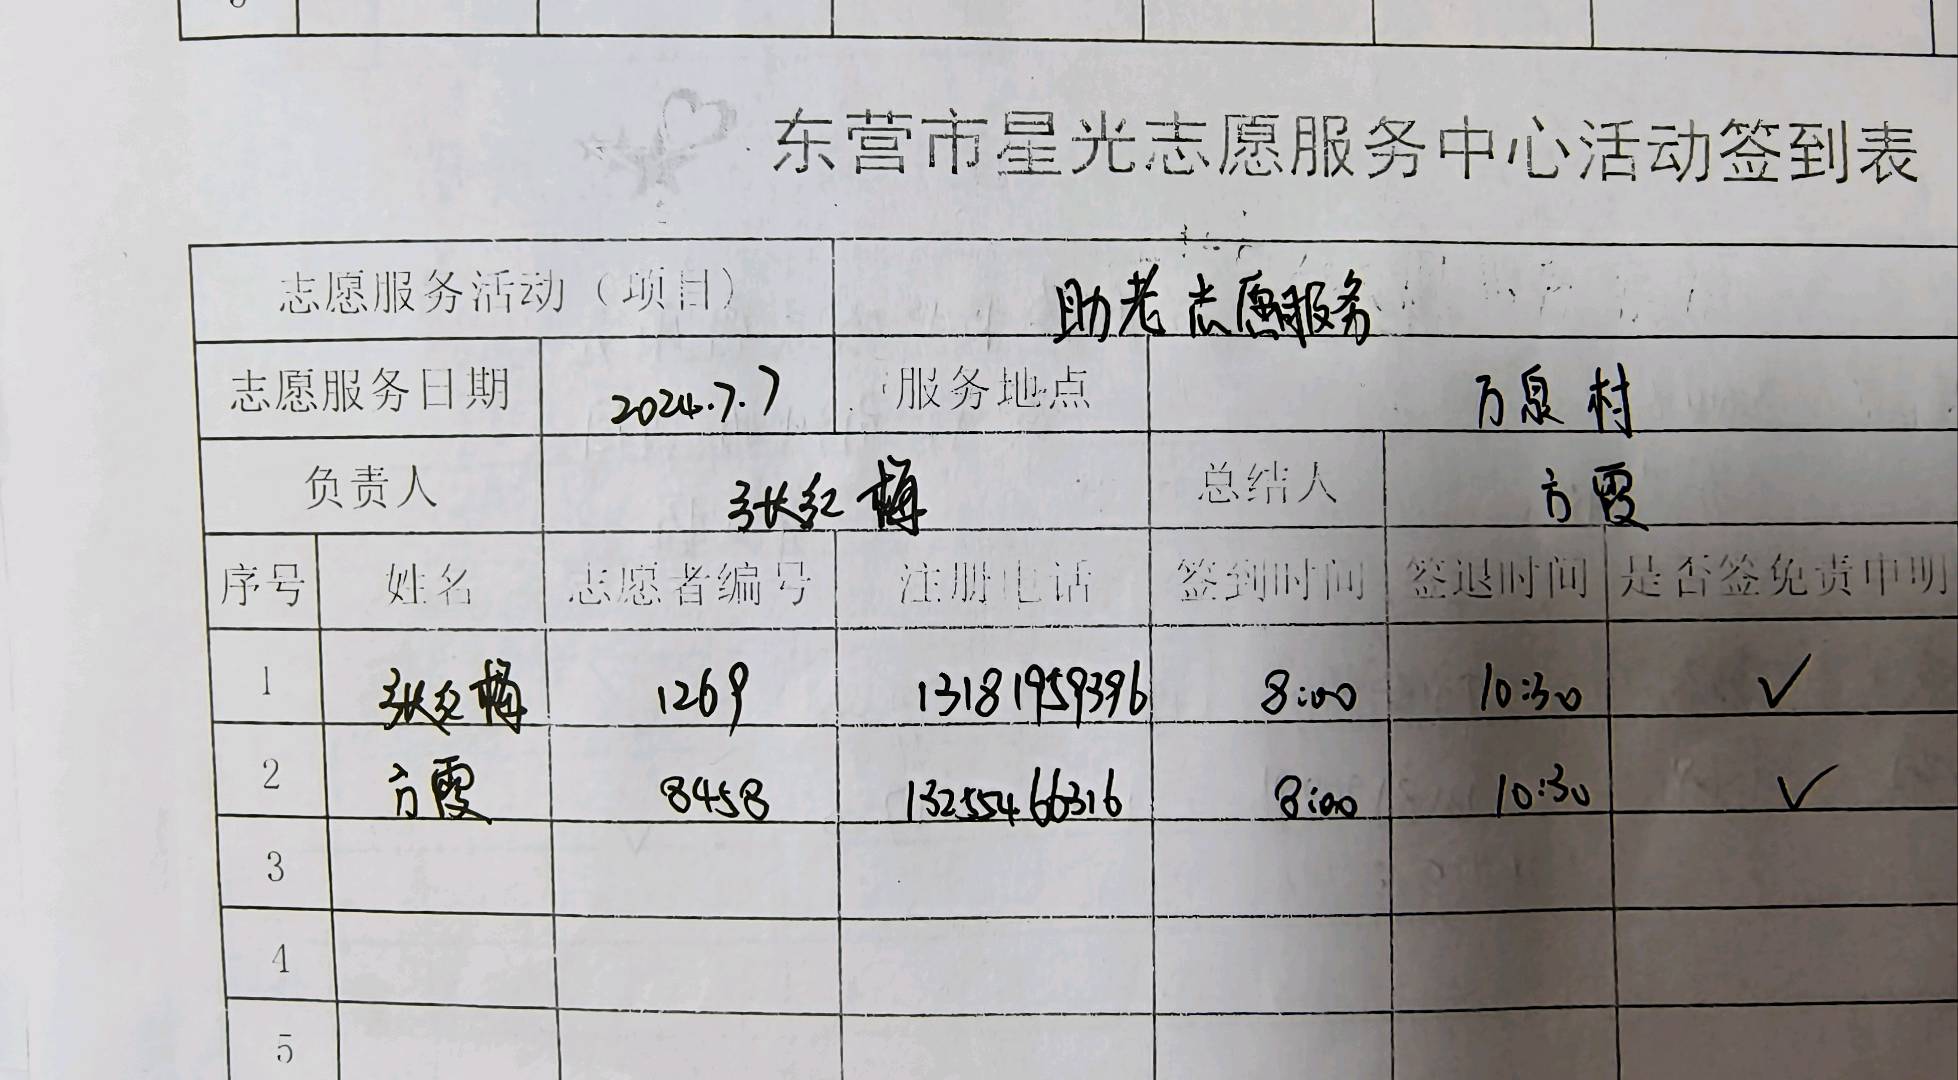 东营市星光志愿服务中心活动签到表
志愿服务活动（项目） 助老志愿服务
志愿服务日期 2024.7.7 服务地点 万泉村
负责人 张红梅 总结人 方霞
序号 姓名 志愿者编号 注册电话 签到时间 签退时间 是否签免责申明
1 张红梅 1269 13181959396 8:00 10:30 ✓
2 方霞 8458 13255466316 8:00 10:30 ✓
3
4
5